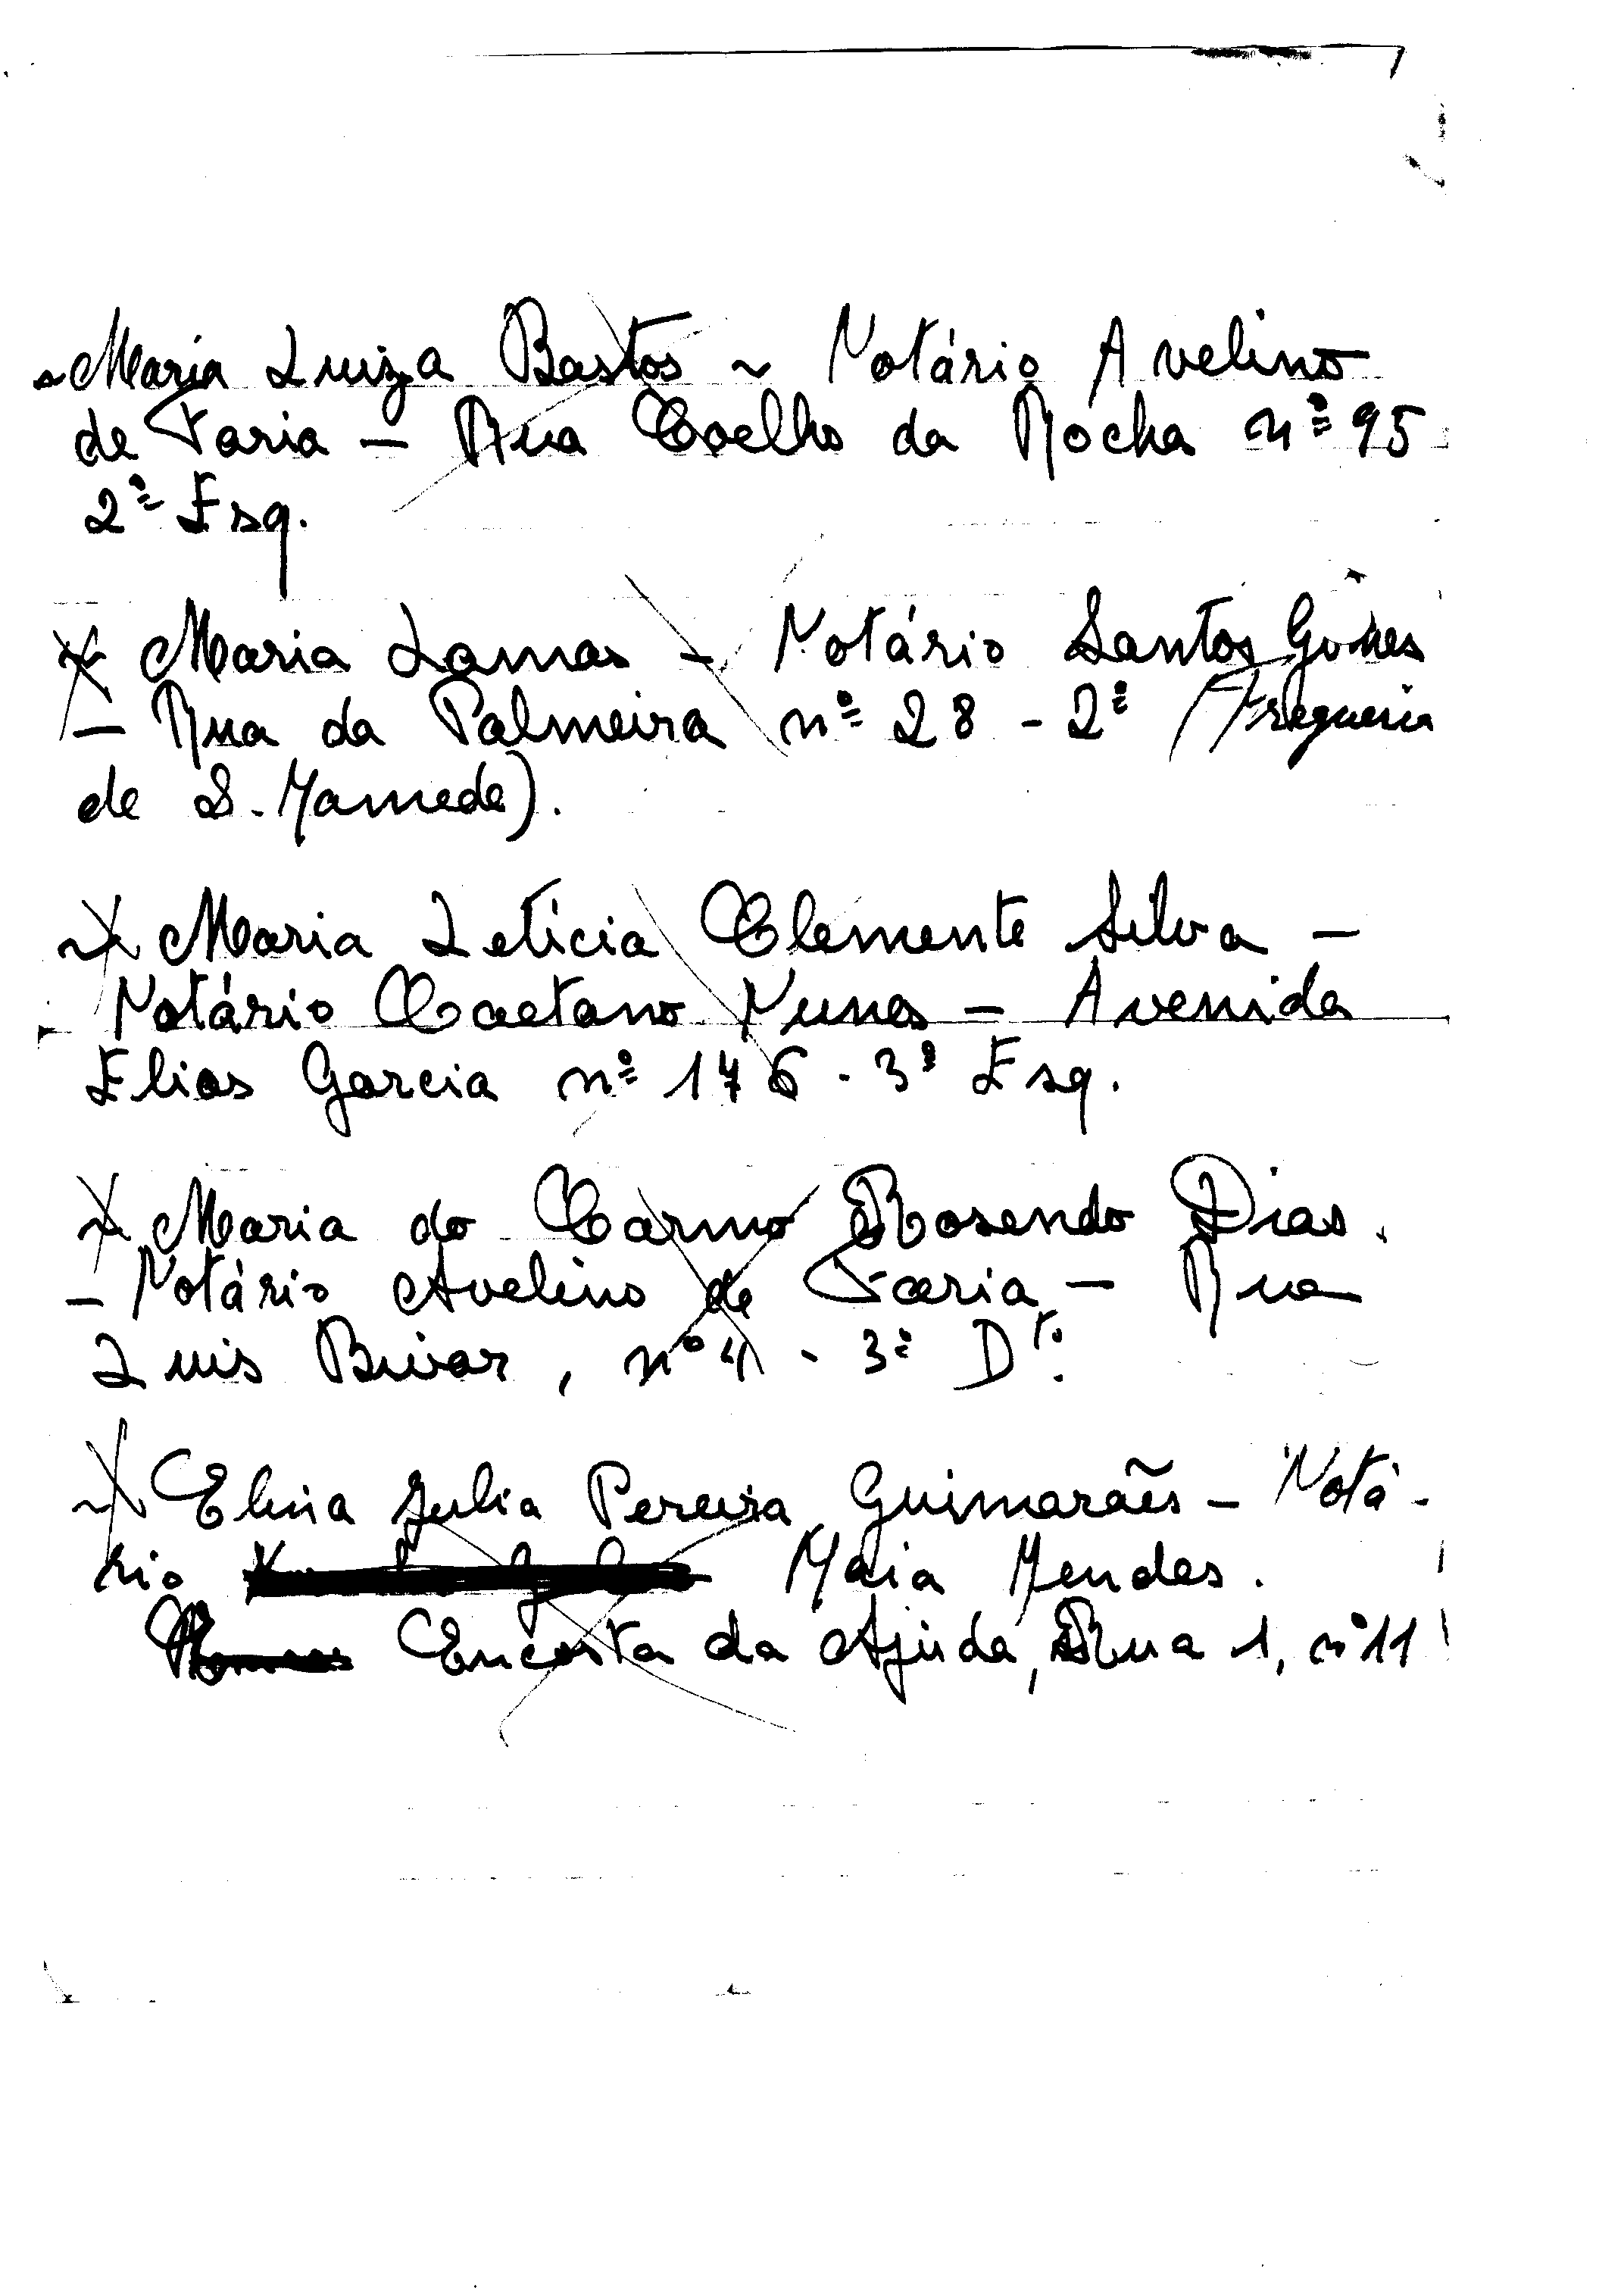 - Maria Luiza Bastos - Notário Avelino
de Faria - Rua Coelho da Rocha nº 95
2º Esq.
Maria Lamas - Notário Santos Gomes
- Rua da Palmeira nº 28 - 2º (Freguesia
de S. Mamede).
Maria Letícia Clemente Silva -
Notário Caetano Nunes - Avenida
Elias Garcia nº 176 - 3º Esq.
Maria do Carmo Rosendo Dias.
- Notário Avelino de Faria - Rua
Luis Bivar, nº 4 - 3º Dtº.
Elina Julia Pereira Guimarães - Notá-
rio Maia Mendes.
Encosta da Ajuda, Rua 1, nº 11